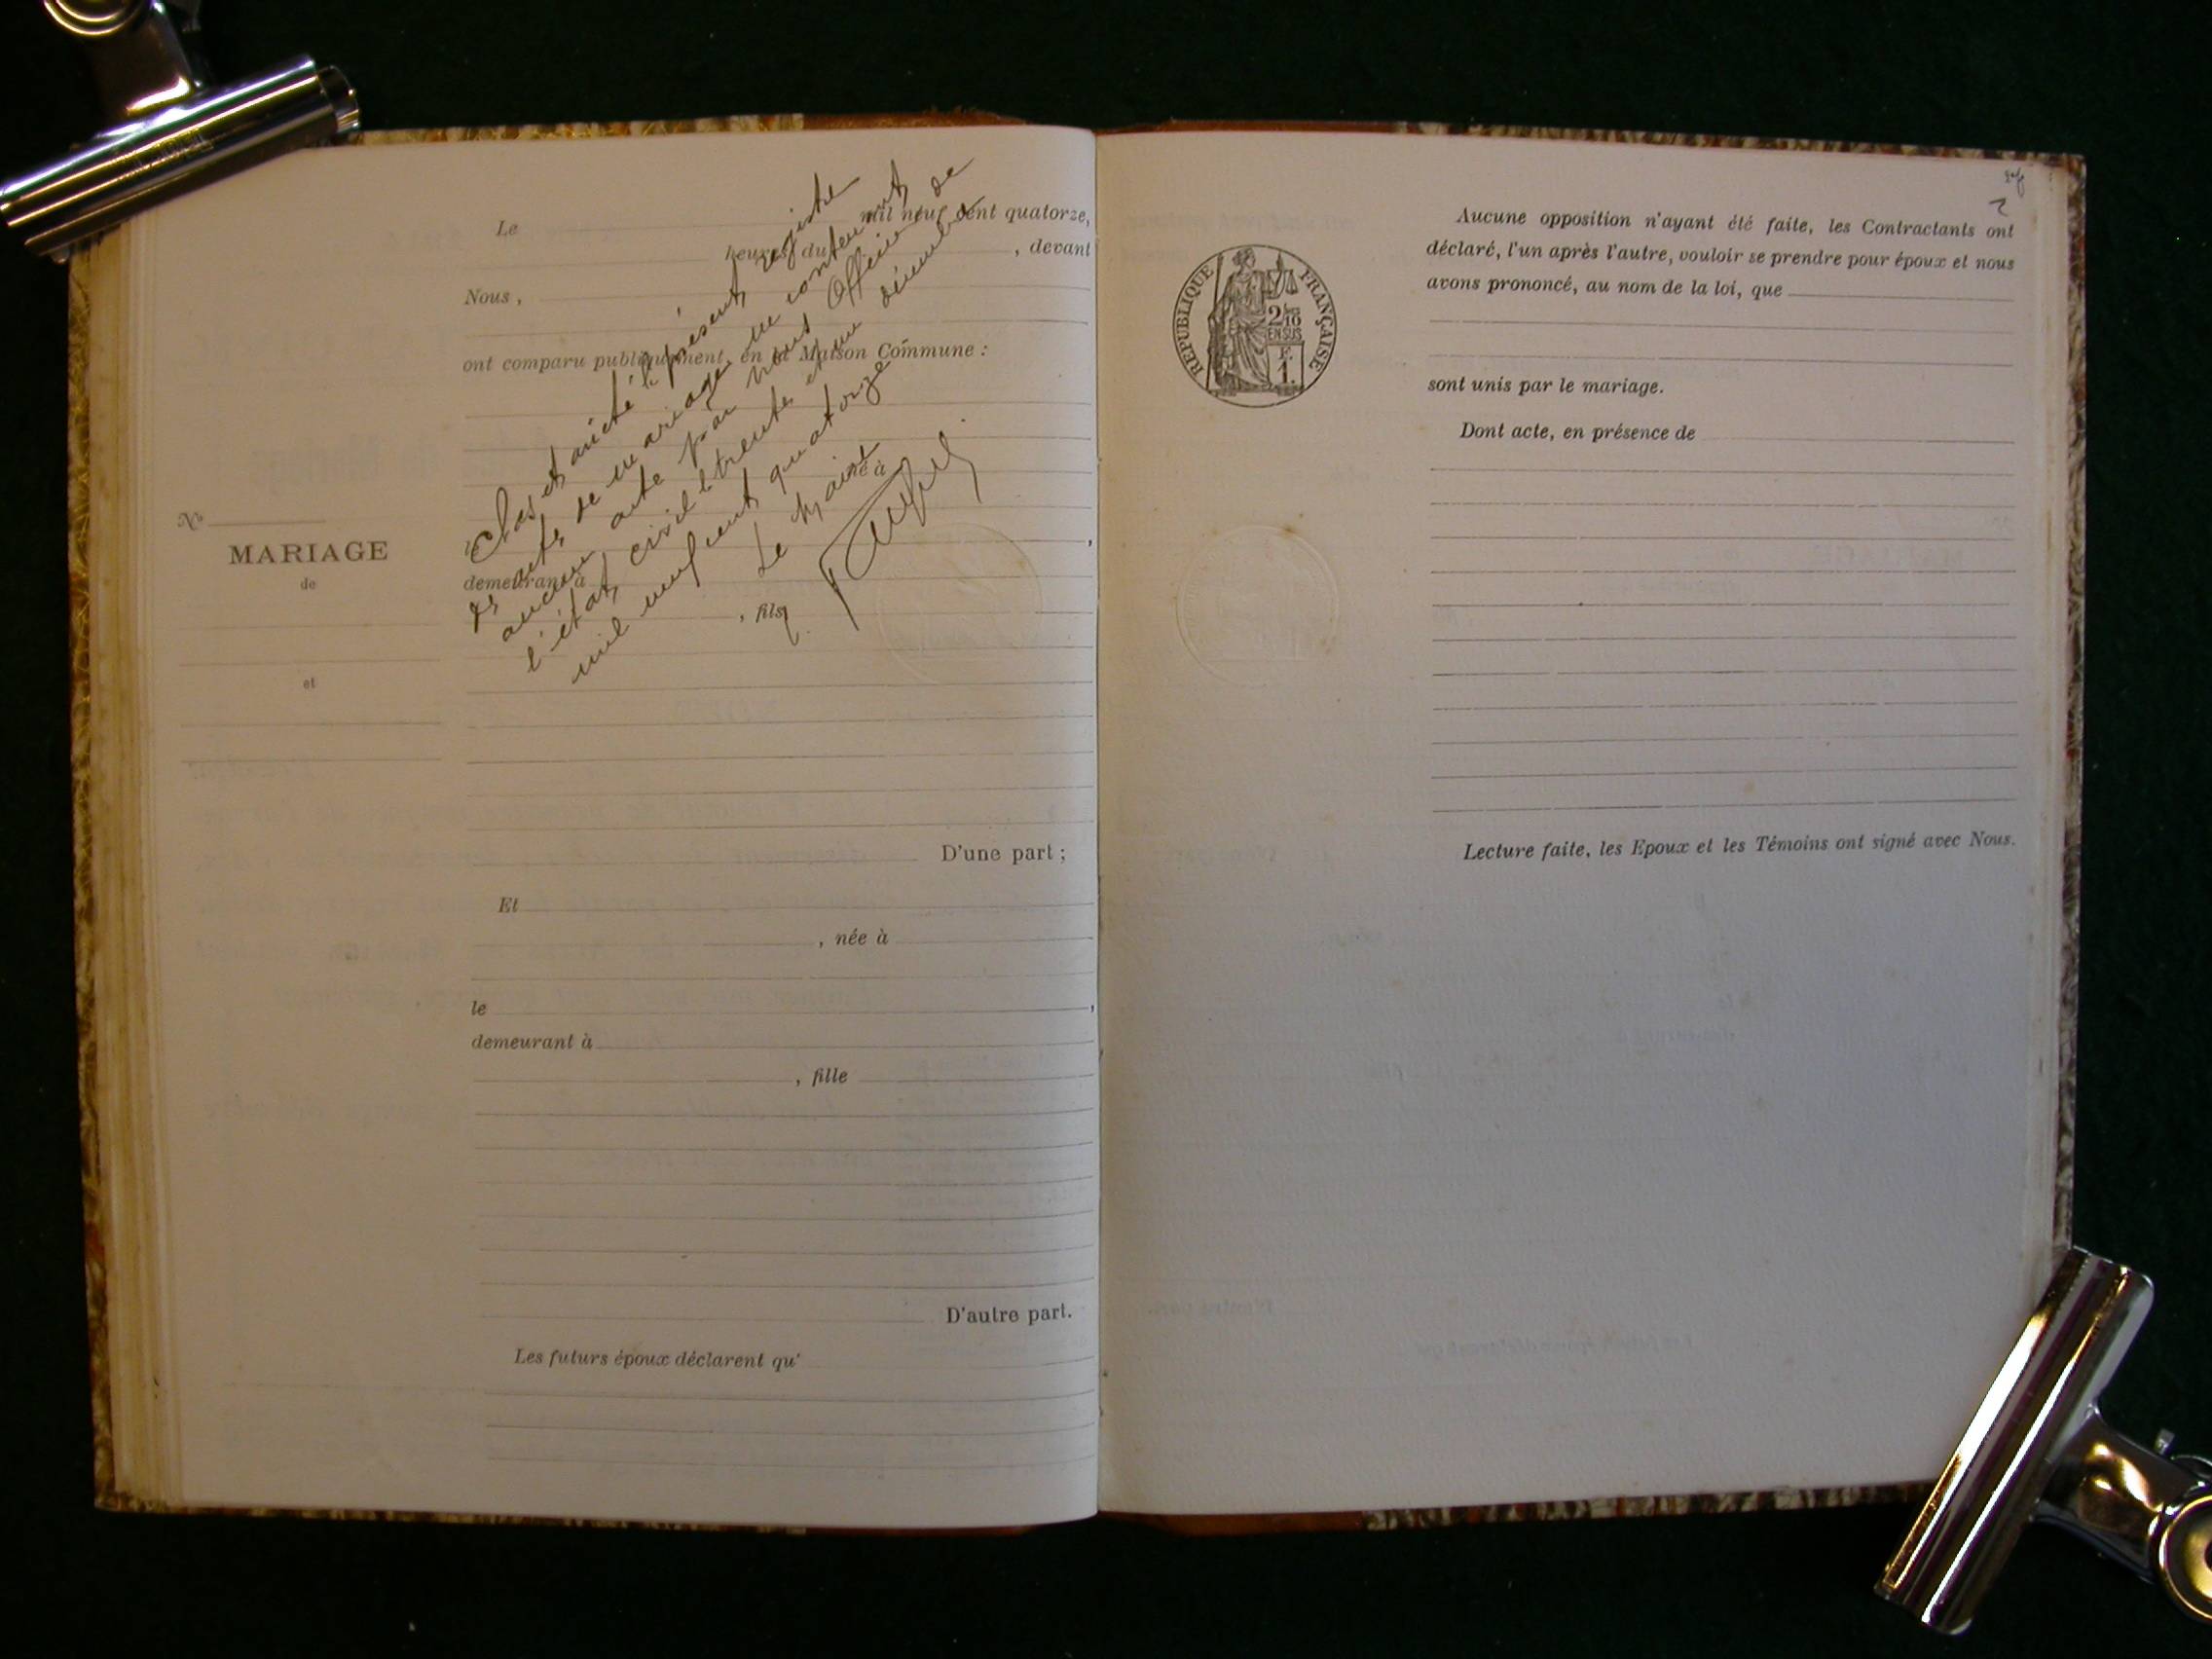 Le mil neuf cent quatorze,
heures du , devant
Nous ,
ont comparu publiquement, en la Maison Commune :
né à
le ,
demeurant à
, fils
Clos et arrêté le présent registre
des actes de mariage ne contenant
aucun acte par nous Officier de
l'état civil le trente et un décembre
mil neuf cent quatorze
Le Maire
No
MARIAGE
de
et
D'une part ;
Et
, née à
le ,
demeurant à
, fille
D'autre part.
Les futurs époux déclarent qu'
REPUBLIQUE FRANÇAISE
2/10
EN SUS
F.
1.
2
Aucune opposition n'ayant été faite, les Contractants ont
déclaré, l'un après l'autre, vouloir se prendre pour époux et nous
avons prononcé, au nom de la loi, que
sont unis par le mariage.
Dont acte, en présence de
Lecture faite, les Epoux et les Témoins ont signé avec Nous.